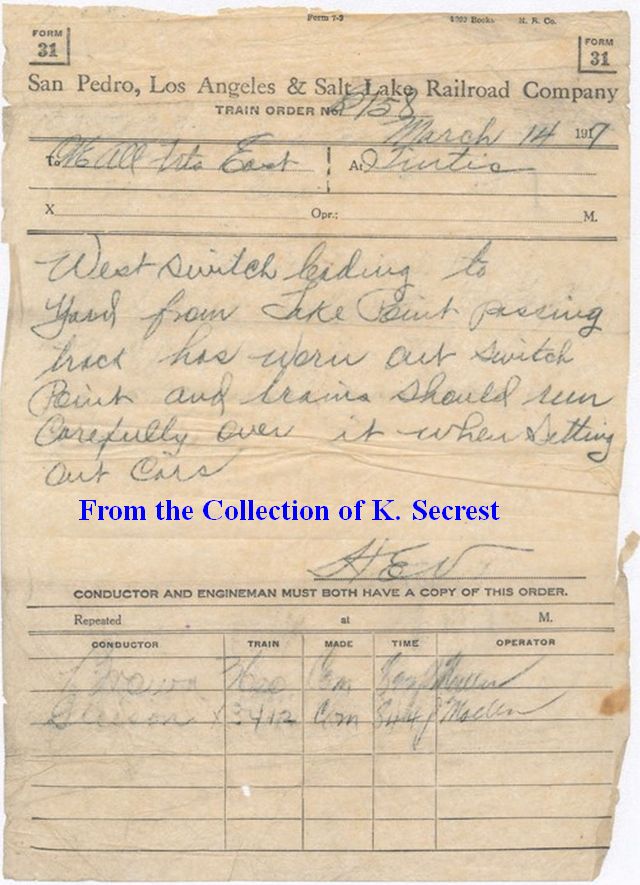 Form 7-3 N. B. Co.
FORM 31
FORM 31
San Pedro, Los Angeles & Salt Lake Railroad Company
TRAIN ORDER No.
March 14 1917
To All East At Tintic
X Opr.; M.
West switch leading to
yard from Lake Point passing
track has worn out switch
Point and trains should run
Carefully over it when setting
out Cars
From the Collection of K. Secrest
HEV
CONDUCTOR AND ENGINEMAN MUST BOTH HAVE A COPY OF THIS ORDER.
Repeated at M.
CONDUCTOR TRAIN MADE TIME OPERATOR
Com
X3412 Com